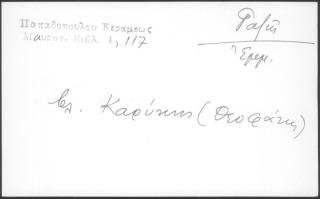 Παπαδοπούλου Κεραμέως
Μαυρογ. Βιβλ. 1, 117
Ραζῆς
Ἐρεμ.
βλ. Καρύκης (Θεοφάνης)